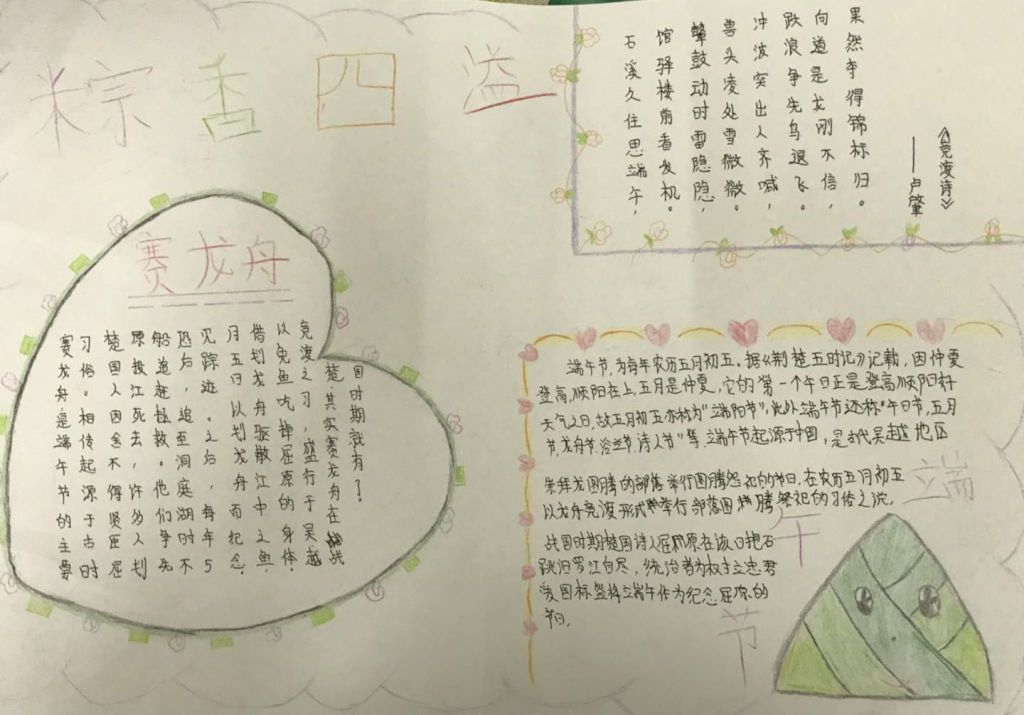 粽香四溢
《竞渡诗》
——卢肇
石溪久住思端午，
馆驿楼前看发机。
鼙鼓动时雷隐隐，
兽头凌处雪微微。
冲波突出人齐喊，
跃浪争先鸟退飞。
向道是龙刚不信，
果然夺得锦标归。
赛龙舟
赛龙舟是端午节的主要
习俗。相传起源于古时
楚国人因舍不得贤臣屈
原投江死去，许多人划
船追赶拯救。他们争先
恐后，追至洞庭湖时不
见踪迹。之后，每年5
月五日以划龙舟而纪念，
借划龙舟驱散江中之鱼，
以免鱼吃掉屈原的身体。
竞渡之习，盛行于吴越
楚，其实赛龙舟在战
国时期就有了？
端午节，为每年农历五月初五。据《荆楚五时记》记载，因仲夏
登高，顺阳在上，五月是仲夏，它的第一个午日正是登高顺阳
天气之日，故五月初五亦称为"端阳节"，此外端午节还称"午日节，五月
节，龙舟节，浴兰节，诗人节"等，端午节起源于中国，是古代吴越地区
崇拜龙图腾的部落举行图腾祭祀的节日，在农历五月初五
以龙舟竞渡形式举行部落图腾祭祀的习俗之说。
战国时期楚国诗人屈原在该日抱石
跳汨罗江自尽，统治者为树立忠君
爱国标签将端午作为纪念屈原的
节日。
端
午
节